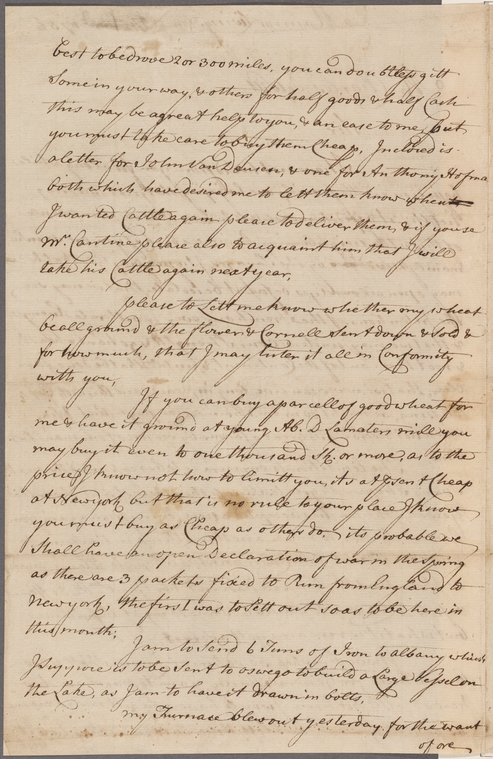 best to be drove 2 or 300 miles, you can doubtless gitt
Some in your way, & others for half goods & half Cash
this may be agreat help to you, & an ease to me, But
you must take care to buy them Cheap, Inclosed is
a letter for John Van Deusen, & one for Anthony Hofma
both which have desired me to lett them know when
I wanted Cattle again please to deliver them, & if you se
Mr. Cantine please also to acquaint him that I will
take his Cattle again next year,
please to Lett me know whether my wheat
be all ground & the flower & Cornell Sent down & Sold &
for how much, that I may Enter it all in Conformity
with you,
If you can buy a parcell of good wheat for
me & have it ground at young Ab. D Lamaters mill you
may buy it even to one thousand Sk. or more, as to the
price I know not how to limitt you, its at psent Cheap
at Newyork but that is no rule to your place I know
you must buy as Cheap as others do, its probable we
Shall have an open Declaration of war in the Spring
as there are 3 packets fixed to Run from England to
newyork, the first was to Sett out so as to be here in
this month;
I am to Send 6 Tuns of Iron to albany which
I Suppose is to be Sent to oswego to build a Large vessel on
the Lake, as I am to have it Drawn in bolts,
my Furnace blew out yesterday for the want
of ore